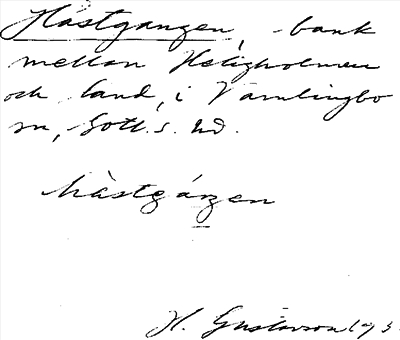 Hästgangen, bank
mellan Heligholmen
och land, i Vamlingbo
sn, Gotl. s. ud.
hàstgáŋen
H. Gustavson 193